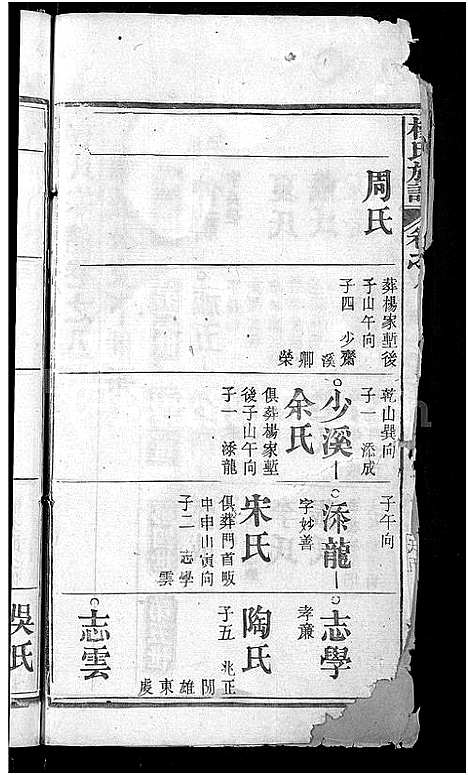 氏族譜
卷之八
周氏
葬楊家塹後
子山午向
子四 少齋
溪 卿 榮
乾山巽向
子一 添成
少溪
余氏
俱葬楊家塹
後子山午向
子一 添龍
子午向
添龍
字妙善
宋氏
俱葬門首畈
中申山寅向
子二 志學
雲
志學
孝廉
陶氏
子五 兆正
關 雄 東 虔
志雲
吳氏